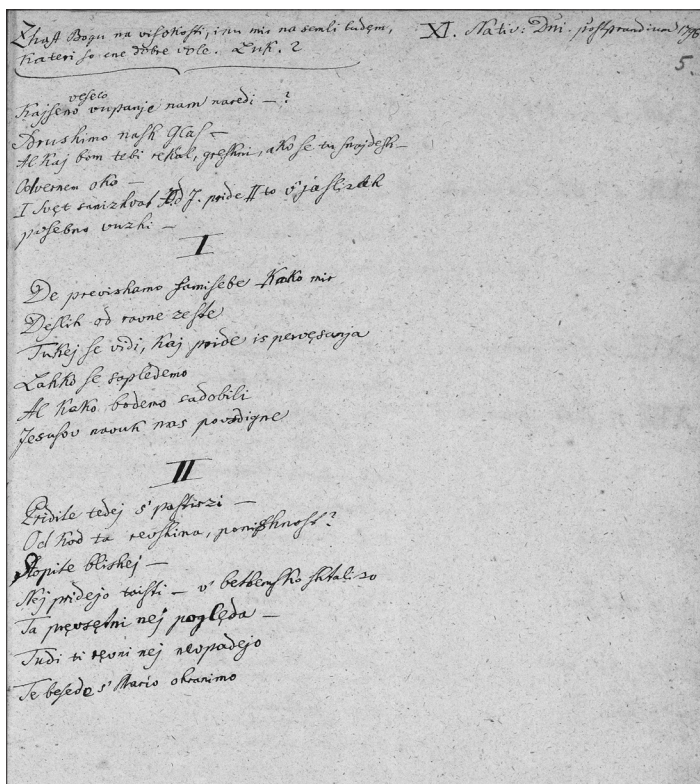 Zhast Bogu na visokosti, inu mir na semli ludęm,
kateri so ene dobre vole. Luk. 2
XI. Nativ: Dni. post prandium 1796
5
veselo
Kajseno vupanje nam naredi — ?
Sdrushimo nash Glas —
Al kaj bom tebi rekal, gręshni, ako se tu snajdesh —
Odvernem oko —
I Svęt Od J. pride II to v' jaslizah
posebno vuzhi —
I
De previshamo samisebe kako mir
Deslih od ravne zeste
Tukej se vidi, kaj pride is
Lahko se sapledemo
Al kako bodemo sadobili
Jesusov navuk nas povsdigne
II
Pridite tedej s' pastirzi —
Od kod ta revshina, ponishnost?
Stopite bliskej —
Nej pridejo taisti — v' betlemsko shtalizo
Ta pręvsętni nej poględa —
Tudi ti ręvni nej
Te besede s' Mario ohranimo